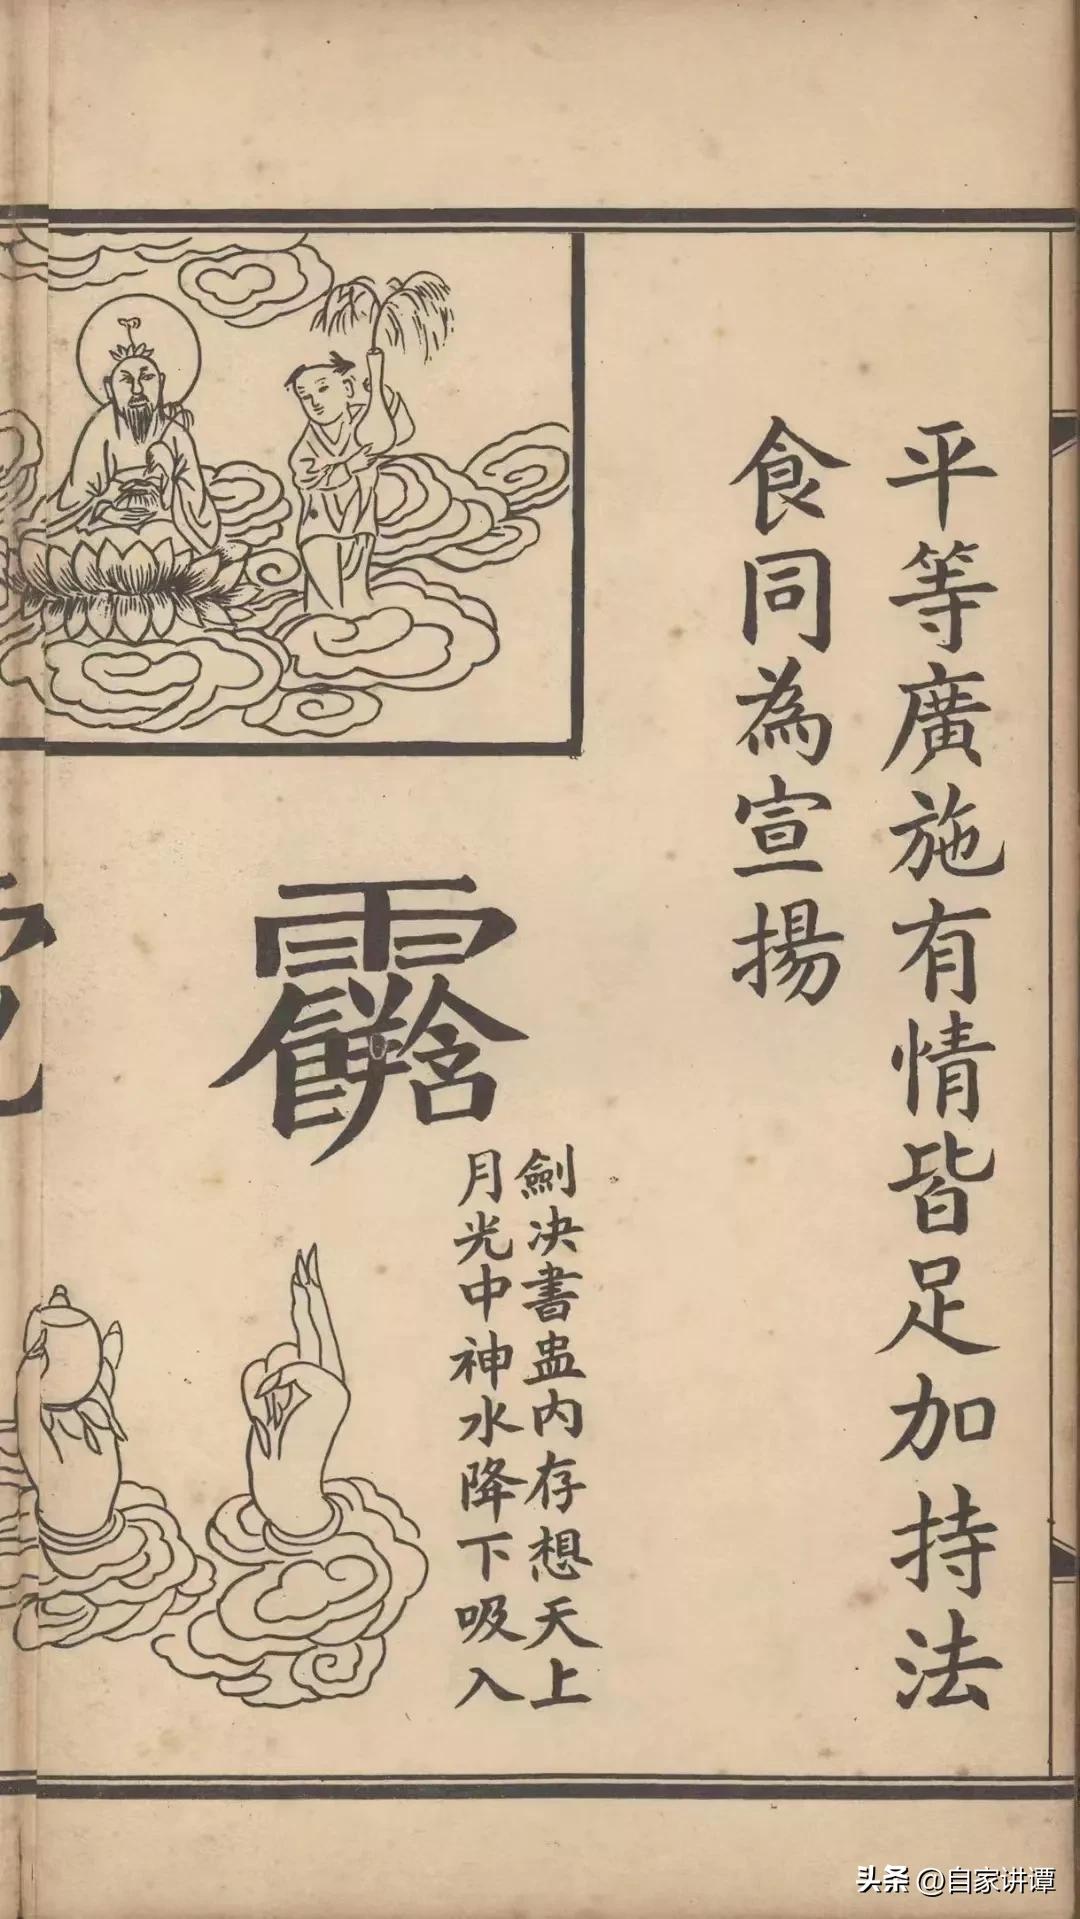 平等廣施有情皆足加持法
食同為宣揚
劍决書盅內存想天上
月光中神水降下吸入
头条 @自家讲谭